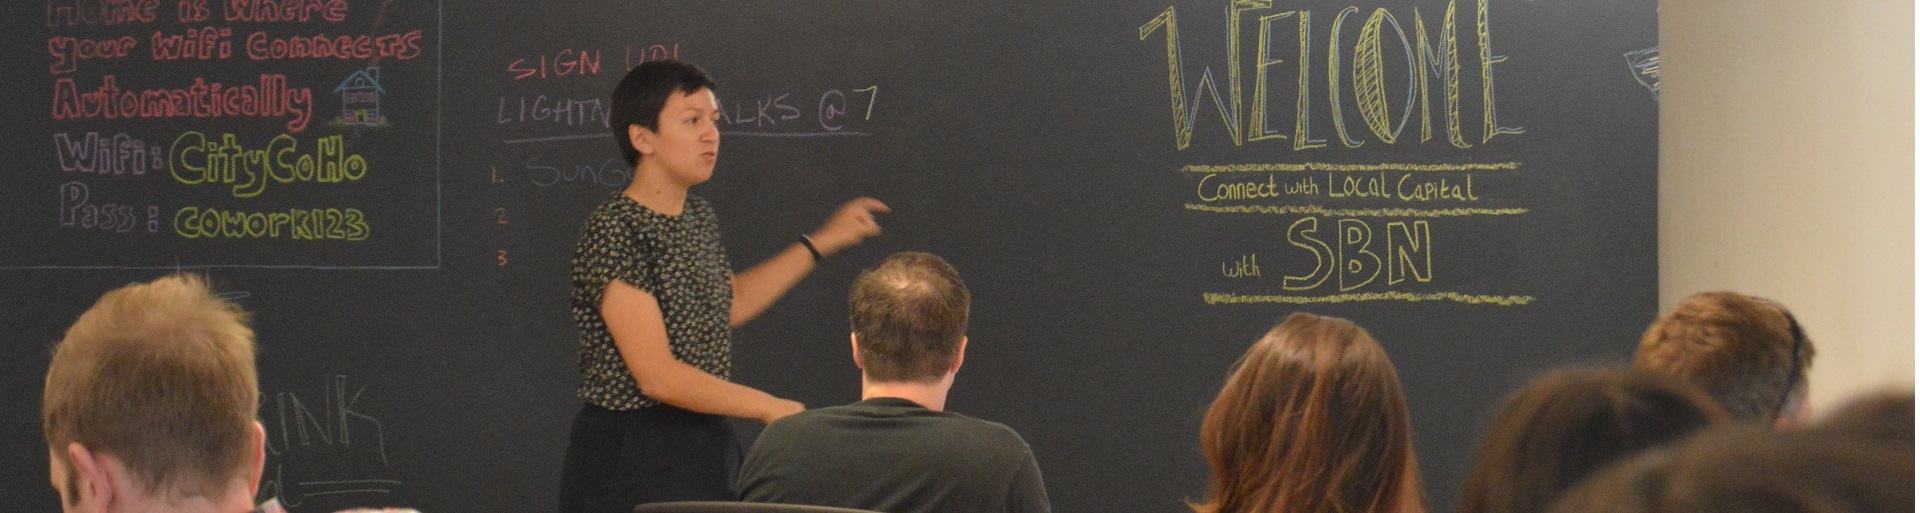 Home is Where
your Wifi Connects
Automatically
Wifi: CityCoHo
Pass: cowork123
SIGN UP!
LIGHTN ALKS @ 7
1. SunG
2
3
WELCOME
Connect with Local Capital
with SBN
INK